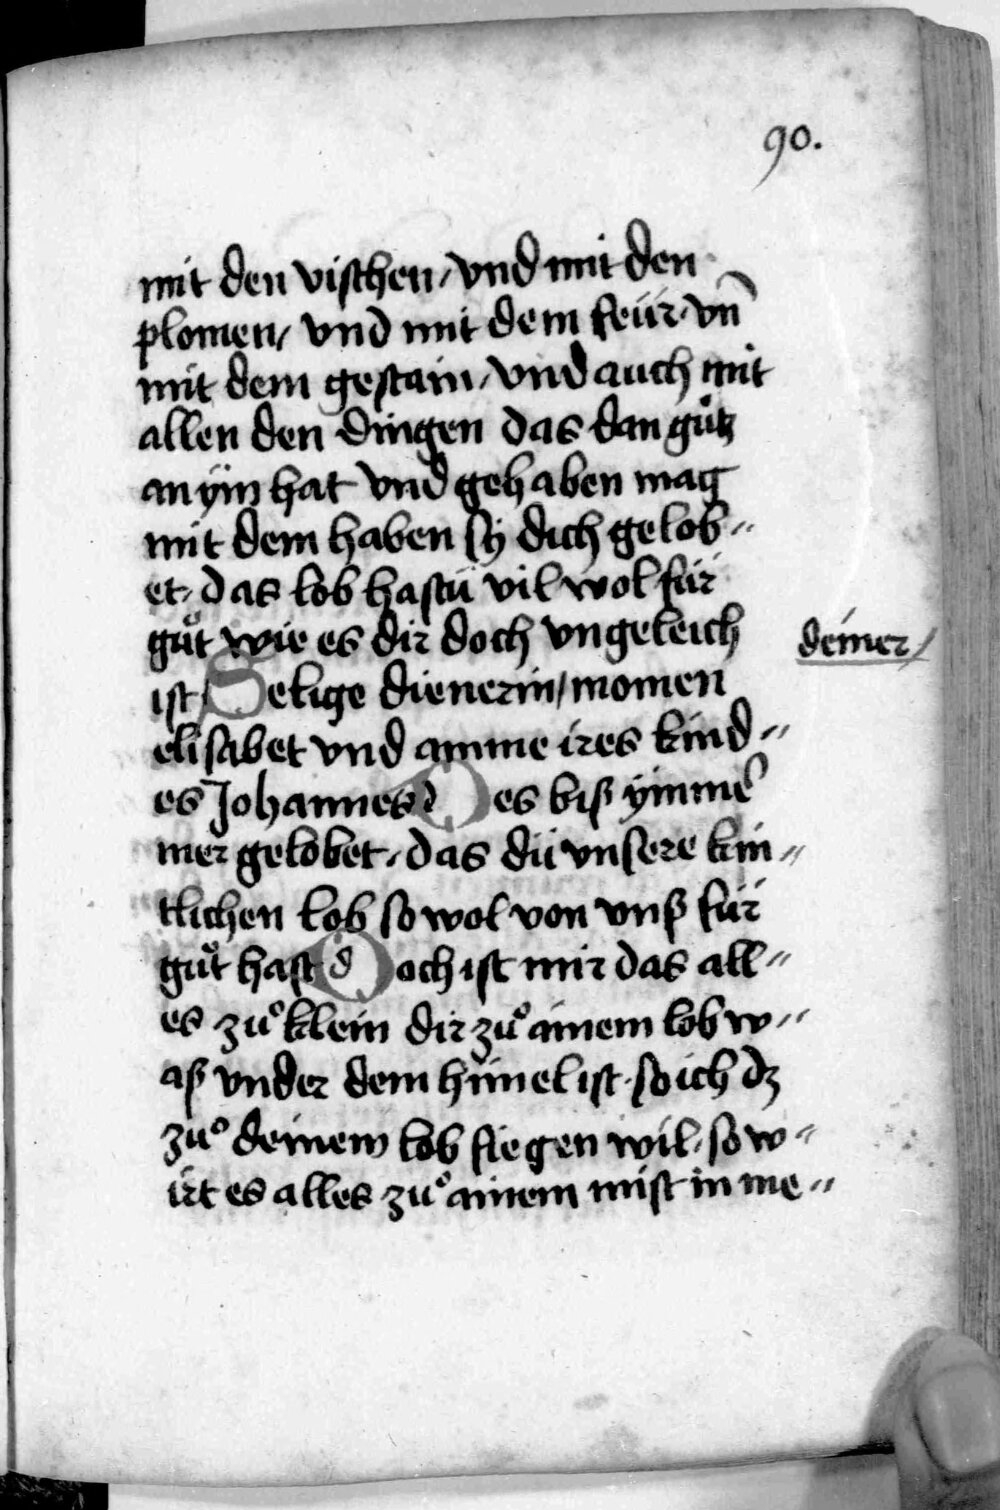 90.
mit den vischen / vnd mit den
plomen / vnd mit dem feür / vn̄
mit dem gestain / vnd auch mit
allen den dingen das dan gůtz
an ÿm hat vnd gehaben mag
mit dem haben sÿ dich gelob〃
et / das lob hastu vil wol für
gůt wie es dir doch vngeleich
deiner /
ist / Selige dienerin / momen
elisabet vnd amme ires kind〃
es Johannes Des biß ÿmmer
mer gelobet / das dü vnsere kin〃
tlichen lob so wol von vnß für
gůt hast Doch ist mir das all〃
es zuͦ klein dir zuͦ ainem lob w〃
aß vnder dem himel ist · so ich dz
zuͦ deinem lob fiegen wil / so w〃
irt es alles zuͦ ainem mist in me〃